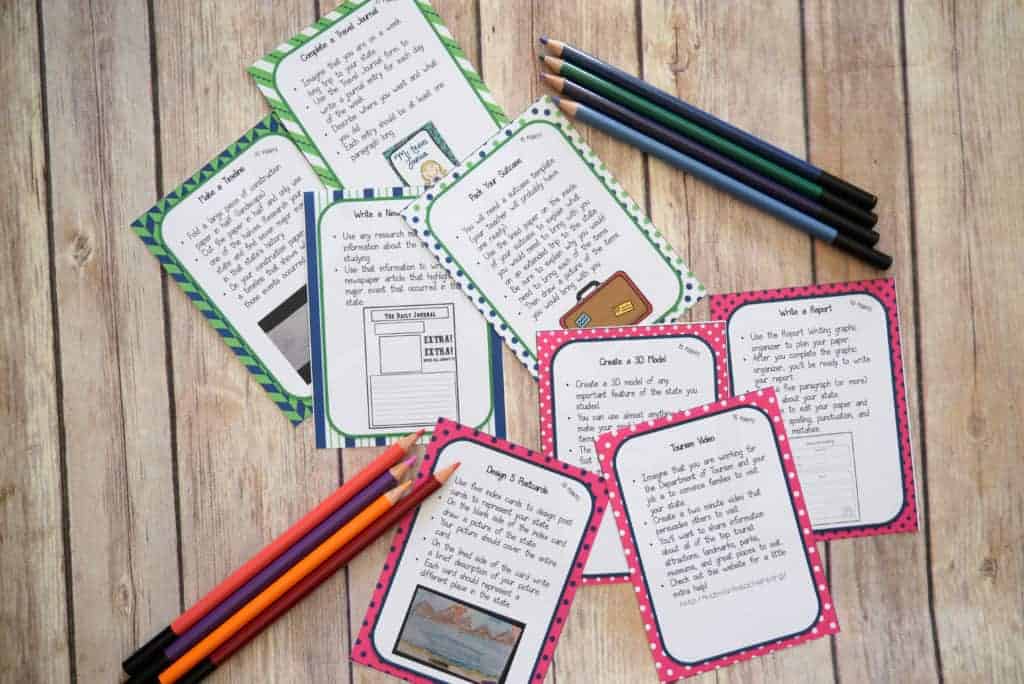 Complete a Travel Journal
• Imagine that you are on a week
long trip to your state.
• Use the Travel Journal form to
write a journal entry for each day
of the week.
• Describe where you went and what
you did.
• Each entry should be at least one
paragraph long.
My Travel
Journal
Make a Timeline
• Fold a large piece of construction
paper in half (landscape).
Cut the paper in half and only use
one of the halves. Research your
state and find seven major
in that state's history.
• On your construction paper
a timeline that shows
those events occurred
Write a New
• Use any research
information about the
studying.
• Use that information to
newspaper article that
major event that occurred in
state.
THE DAILY JOURNAL
EXTRA!
EXTRA!
Pack Your Suitcase
• You will need a suitcase template
(your teacher will probably have
one ready).
• Use the lined paper on the inside
of your suitcase to explain what
you would need to bring with you
on an extended trip to the state.
• Be sure to explain why you would
need to bring each of the items.
• Then draw a picture of the items
you would bring with you.
Create a 3D Model
• Create a 3D model of any
important feature of the state you
studied.
• You can use almost
make your
items
Write a Report
• Use the Report Writing graphic
organizer to plan your paper.
• After you complete the graphic
organizer, you'll be ready to write
your report.
five paragraph (or more)
about your state.
to edit your paper and
spelling, punctuation, and
mistakes.
Design 5 Postcards
• Use five index cards to design post
cards to represent your state.
• On the blank side of the index card
draw a picture of the state.
• Your picture should cover the entire
card.
• On the lined side of the card write
a brief description of your picture.
• Each card should represent a
different place in the state.
Tourism Video
• Imagine that you are working for
the Department of Tourism and your
job is to convince families to visit
your state.
• Create a two minute video that
persuades others to visit.
• You'll want to share information
about all of the top tourist
attractions, landmarks, parks,
museums, and great places to eat.
• Check out this website for a little
extra help!